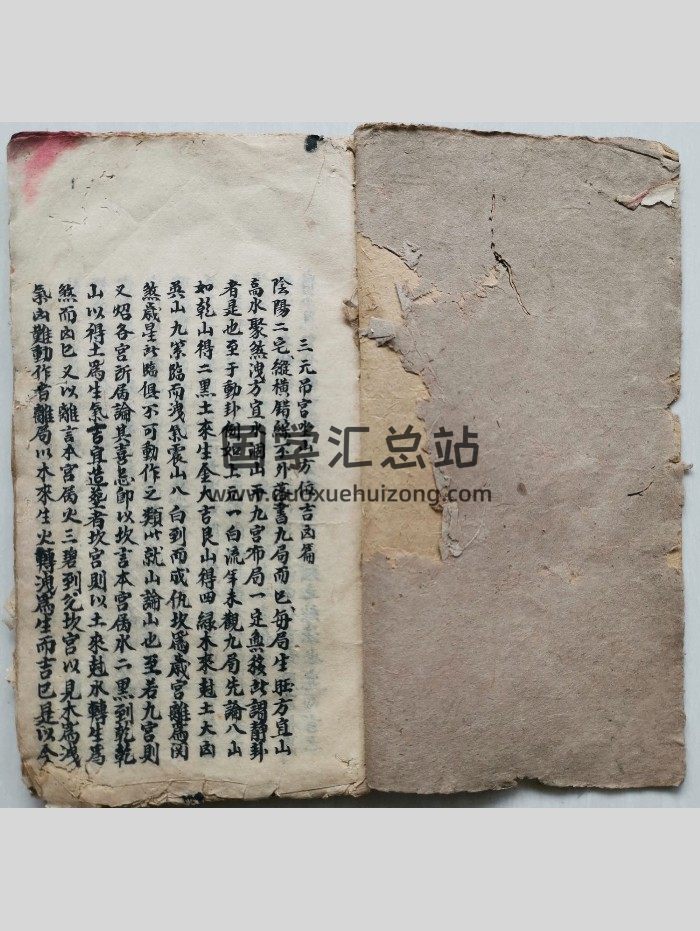 三元吊宮坐山方位吉凶篇
陰陽二宅縱橫錯綜不外落書九局而已每局生旺方宜山
高水聚煞洩方宜水濶山而九宮布局一定無移此謂静卦
者是也至于動卦例如上元一白流年來觀九局先論八山
如乾山得二黑土來生金大吉艮山得四緑木來尅土大凶
巽山九紫臨而洩氣震山八白到而成仇坎為歲宮離為関
煞歲星所臨俱不可動作之類此就山論山也至若九宮則
又炤各宮所属論其喜忌即以坎言本宮属水二黑到乾乾
山以得土為生氣吉宜造塟者坎宮則以土來尅水轉生為
煞而凶已又以離言本宮属火三碧到兑坎宮以見木為洩
氣凶難動作者離局以木來生火轉洩為生而吉已是以今
国学汇总站
www.guoxuehuizong.com